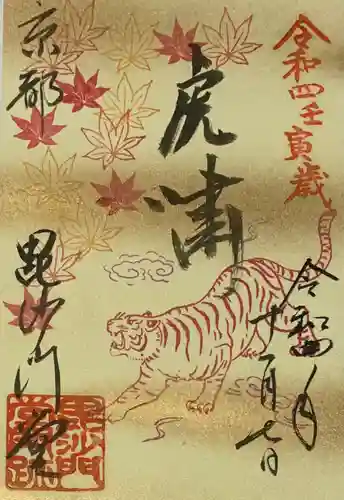 令和四壬寅歳
令和四年
十一月七日
虎嘯
京都
毘沙門堂
毘沙門
堂門跡